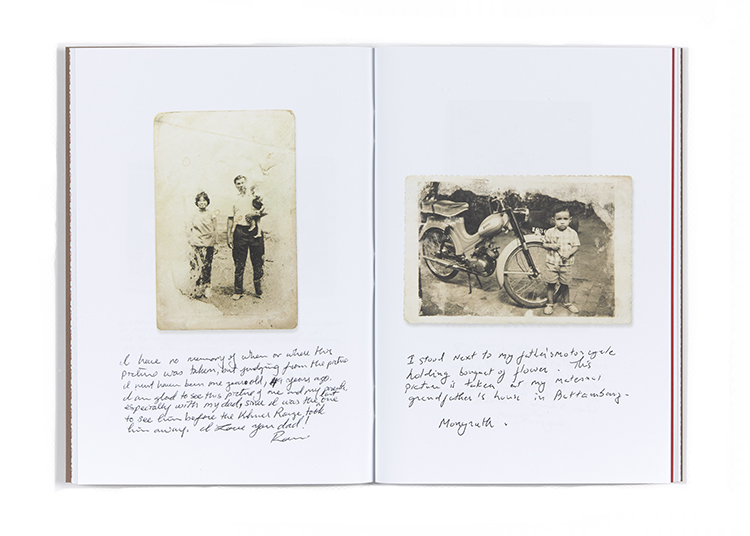 I have no memory of when or where this
picture was taken, but judging from the picture
I must have been one year old, 49 years ago.
I am glad to see this picture of me and my
especially with my dad, since I was the last one
to see him before the Khmer Rouge took
him away. I Love you dad!
I stood next to my father's motorcycle
holding bouquet of flower. This
picture is taken at my maternal
grandfather's house in Battambang.
Monyrath.